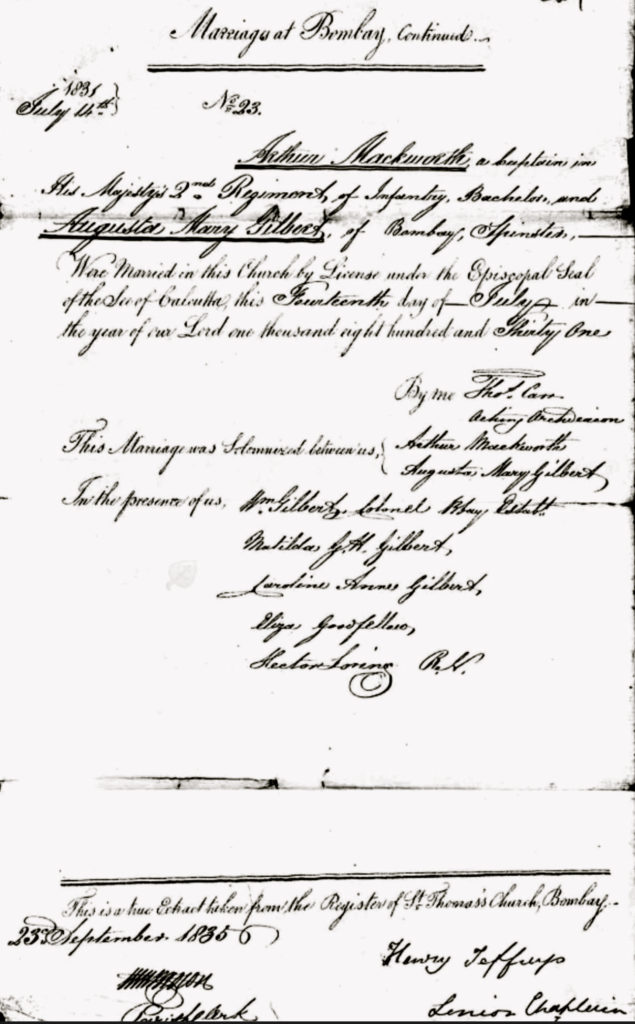 Marriages at Bombay, Continued.
1831
July 14th } No. 23.
Arthur Mackworth, a Captain in
His Majesty's 2nd Regiment, of Infantry, Bachelor, and
Augusta Mary Gilbert, of Bombay, Spinster,
Were Married in this Church by License under the Episcopal Seal
of the See of Calcutta, this Fourteenth day of July in
the year of our Lord one thousand eight hundred and Thirty One
By me Thos. Carr
Acting Archdeacon
This Marriage was Solemnized between us, { Arthur Mackworth
Augusta Mary Gilbert
In the presence of us, Wm Gilbert, Colonel Bbay Establt.
Matilda G.H. Gilbert,
Caroline Anne Gilbert,
Eliza Goodfellow,
Hector Loring R.N.
This is a true Extract taken from the Register of St. Thomas's Church, Bombay.
23d September 1835
Henry Jeffreys
Parish Clerk
Senior Chaplain